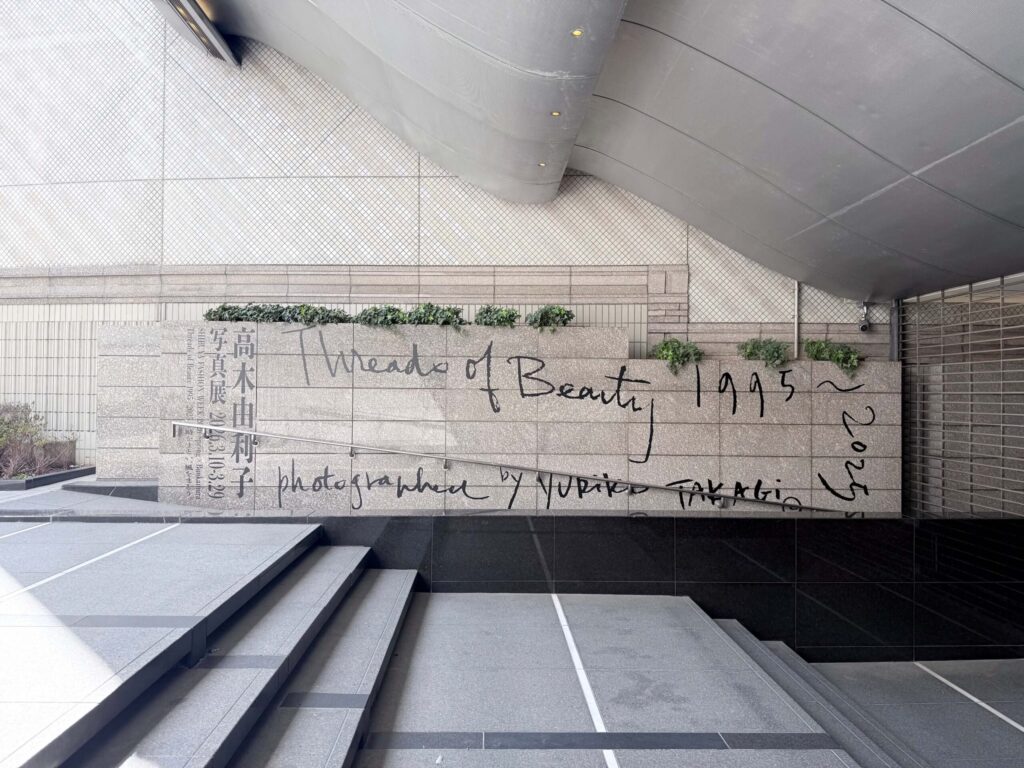 高木由利子
写真展 2026.3.10-3.29
SHIBUYA FASHION WEEK Bunkamura
Threads of Beauty 1995-2025
Threads of Beauty 1995~2025
photographed by YURIKO TAKAGI